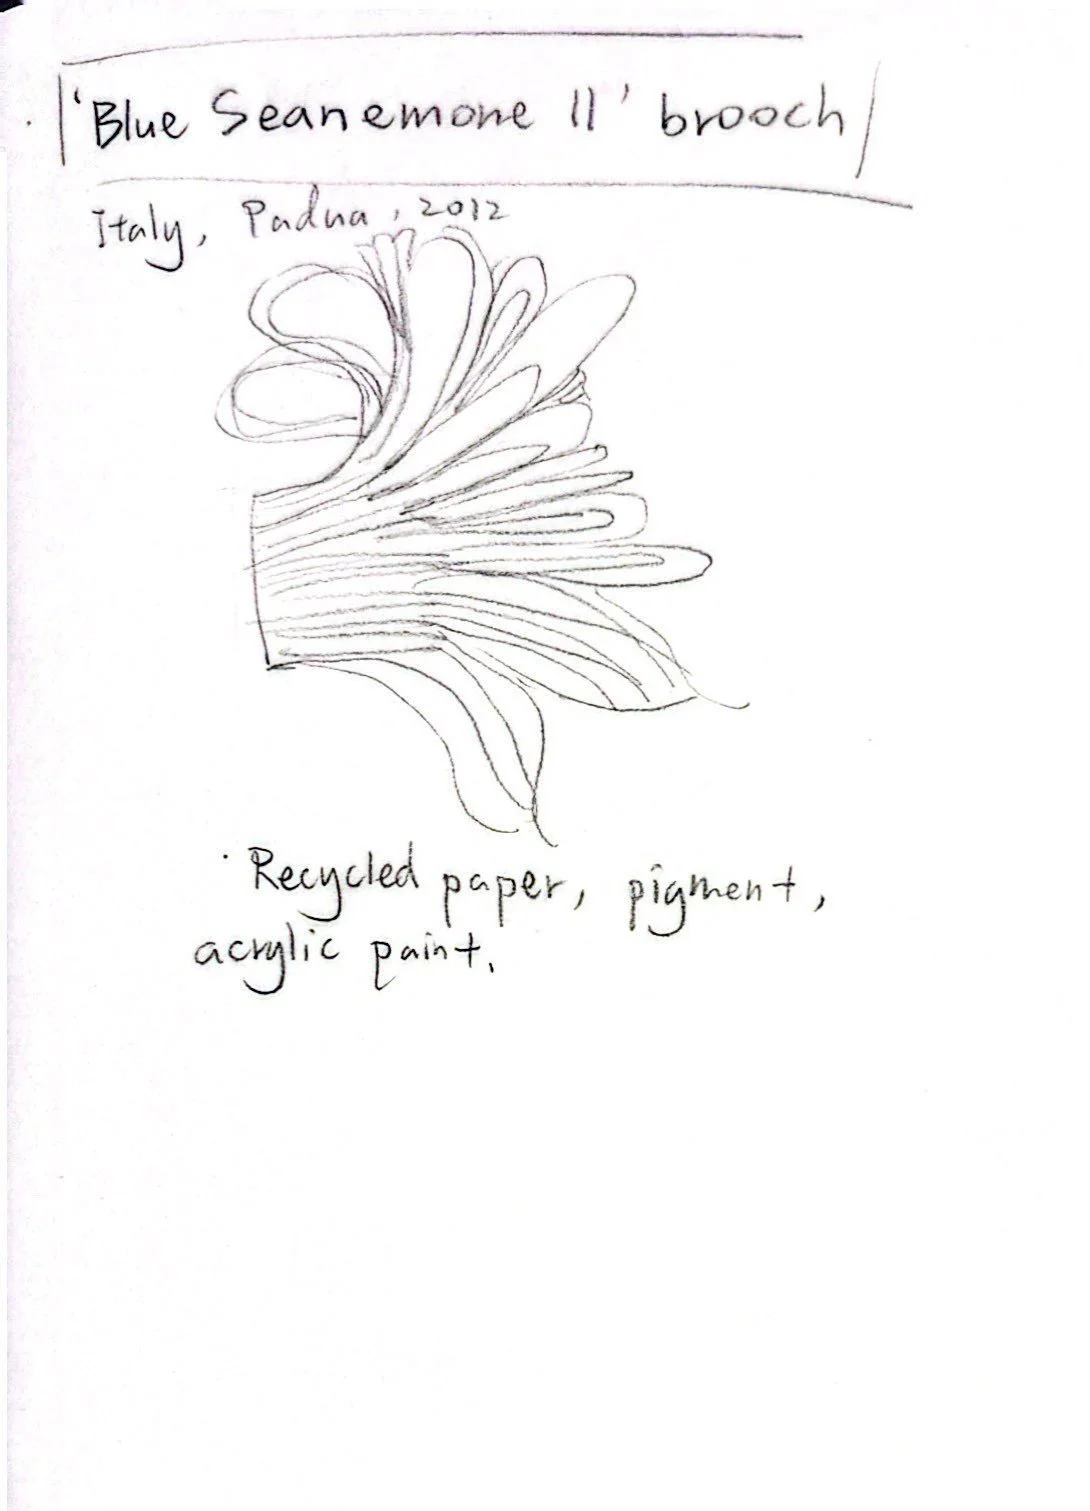 'Blue Seanemone II' brooch
Italy, Padua, 2012
· Recycled paper, pigment,
acrylic paint.